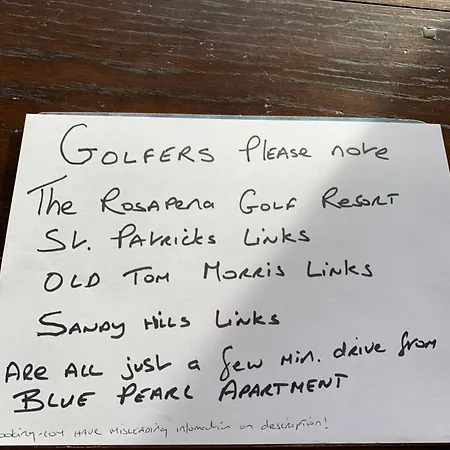 GOLFERS Please note
The ROSAPENA GOLF RESORT
St. PATRICKS LINKS
OLD TOM MORRIS LINKS
SANDY HILLS LINKS
ARE ALL just a few min. drive from
BLUE PEARL APARTMENT
ooking.com HAVE MISLEADING information on description!